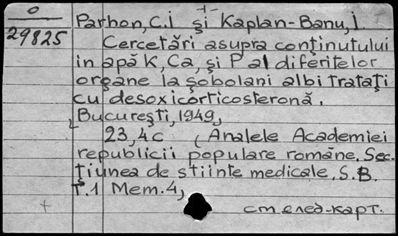 o
29825
Parhon, C.I și Kaplan-Banu, I.
Cercetări asupra conținutului
in apă K, Ca, și P al diferitelor
organe la șobolani albi tratați
cu desoxicorticosteronă.
București, 1949,
23,4c. (Analele Academiei
republicii populare române. Sec-
țiunea de stiinte medicale. S.B.
T.1 Mem.4,
см след-карт.